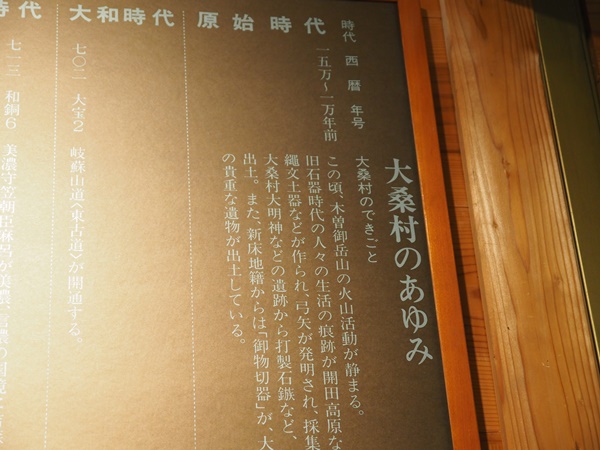 大桑村のあゆみ
時代 西暦 年号
大桑村のできごと
原始時代
一五万～一万年前
この頃、木曽御岳山の火山活動が静まる。
旧石器時代の人々の生活の痕跡が開田高原な
縄文土器などが作られ、弓矢が発明され、採集
大桑村大明神などの遺跡から打製石鏃など、
出土。また、新床地籍からは「御物切器」が、大
の貴重な遺物が出土している。
大和時代
七〇二 大宝2 岐蘇山道〈東古道〉が開通する。
時代
七一三 和銅6 美濃守笠朝臣麻呂が美濃、信濃の国境